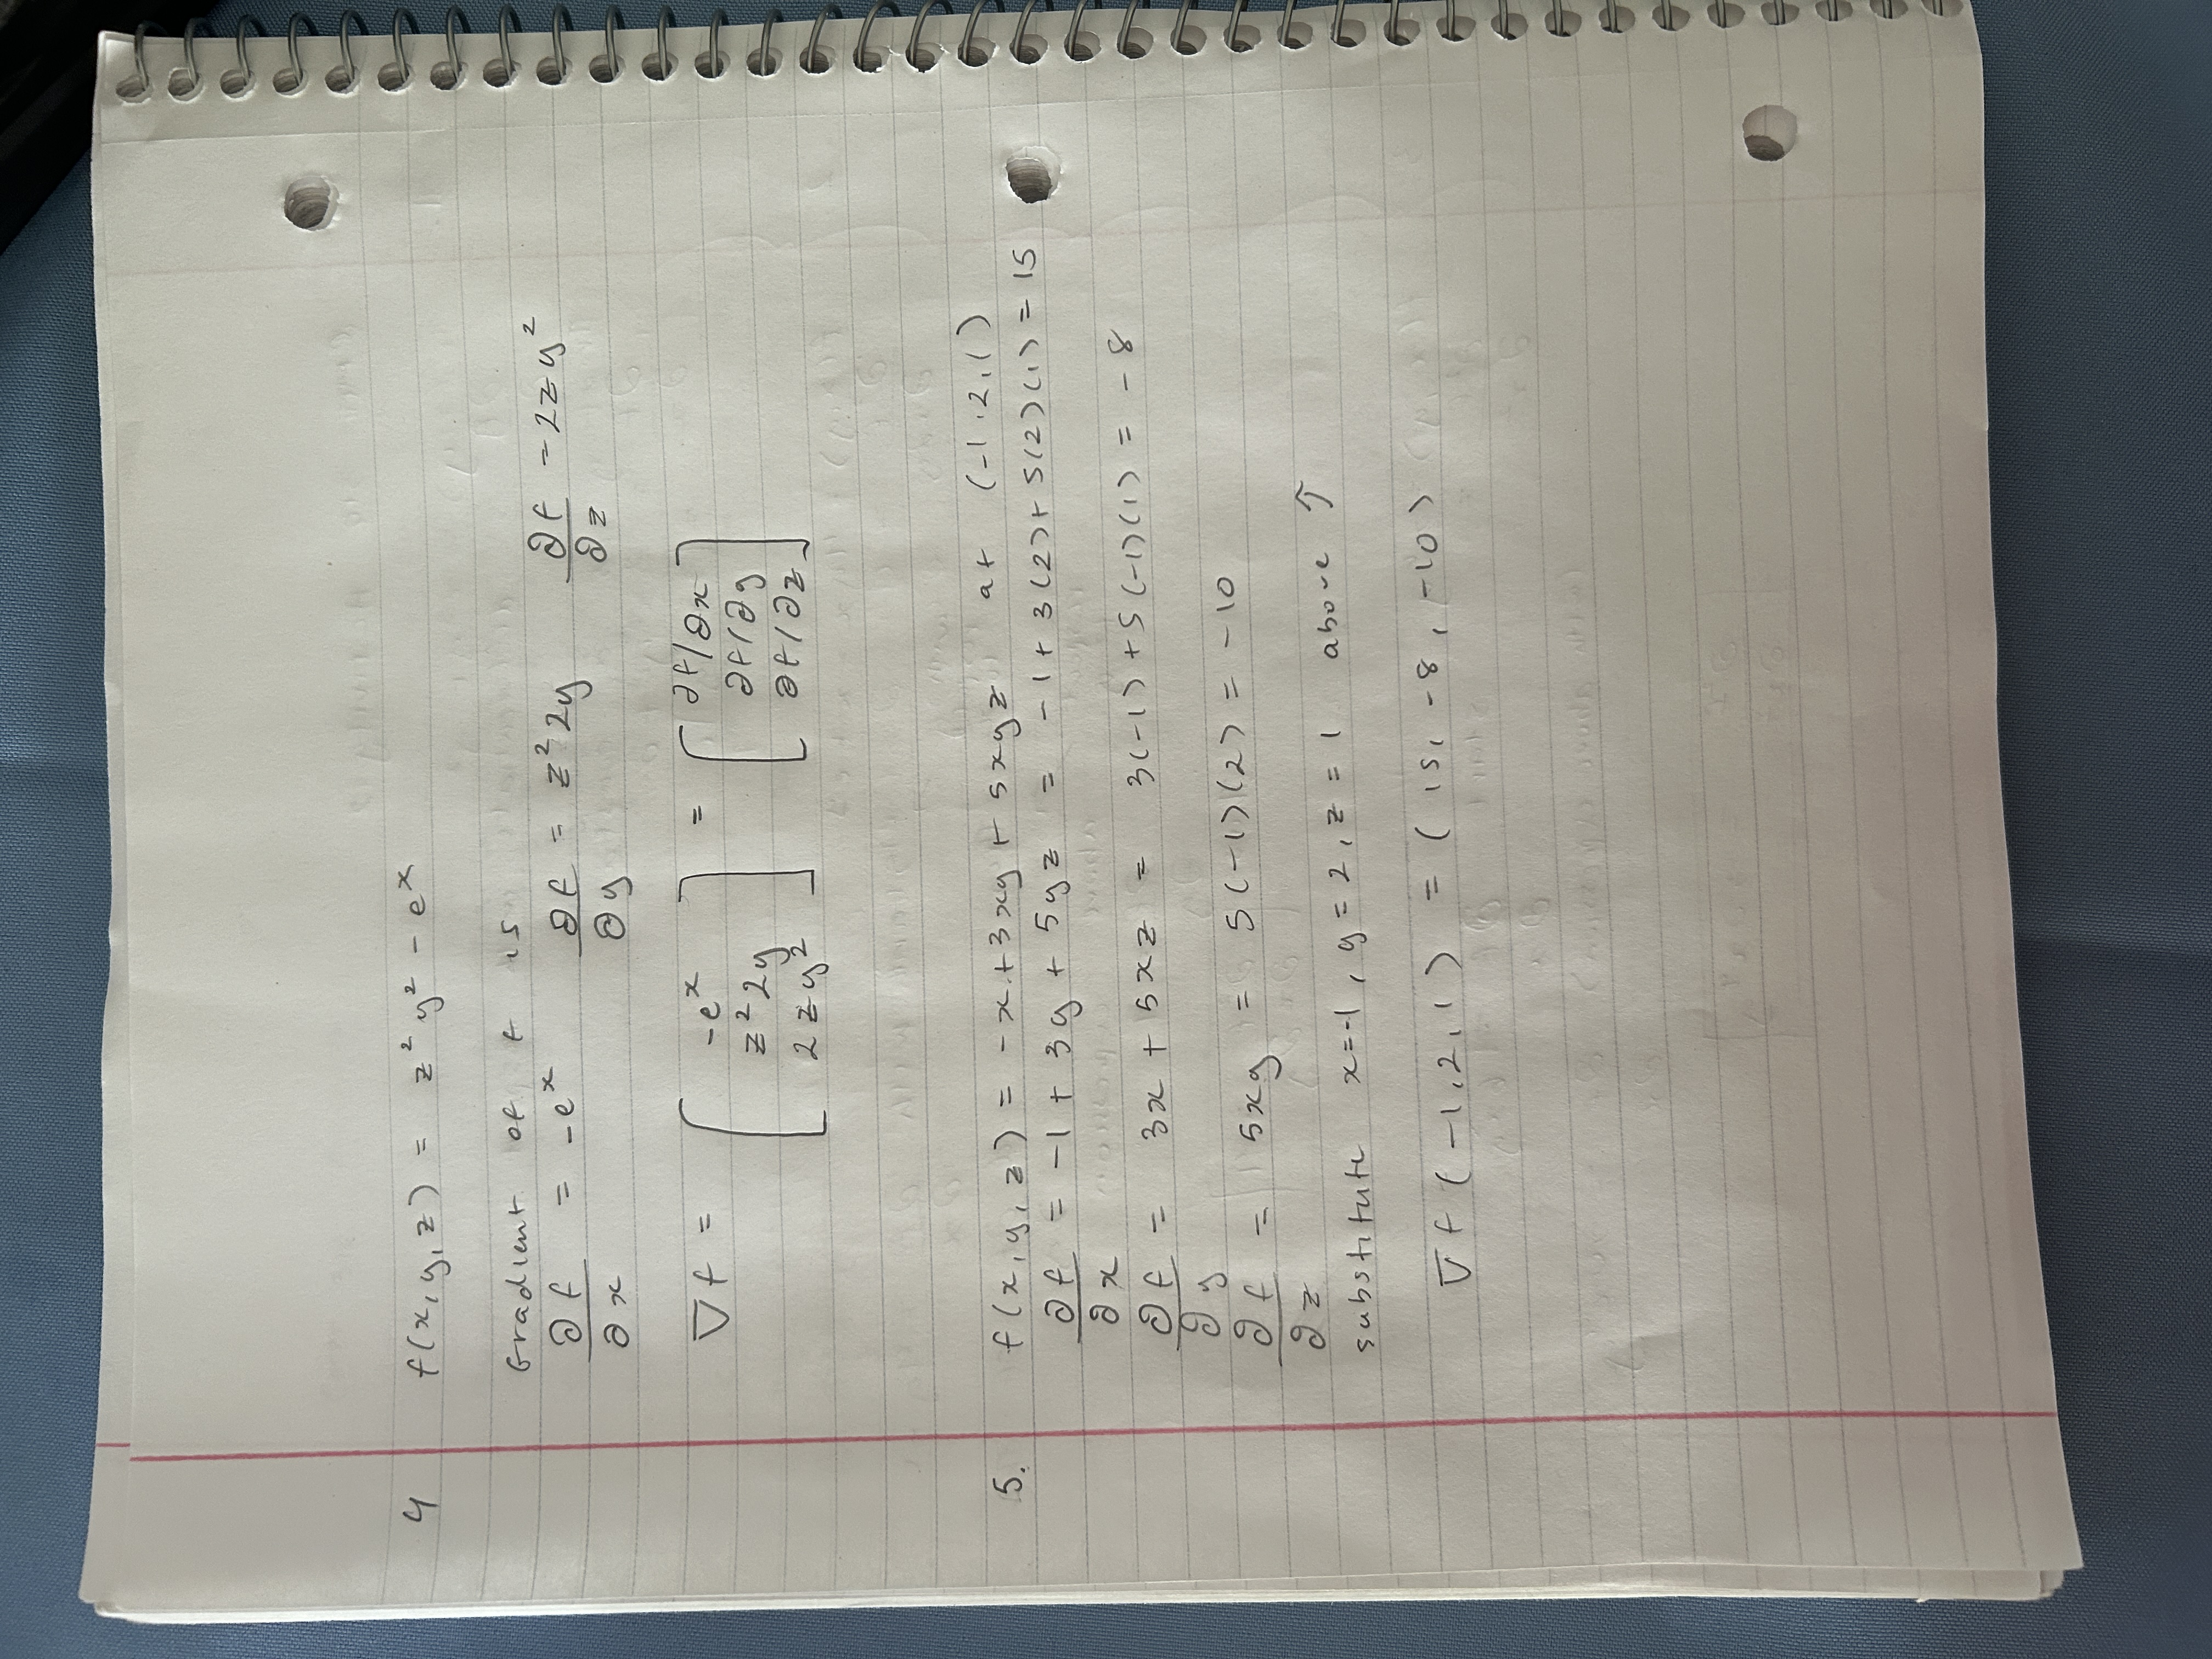 4 f(x,y,z) = z² y² - eˣ
Gradient of f is
∂f/∂x = -eˣ ∂f/∂y = z² 2y ∂f/∂z = 2zy²
∇f = [ -eˣ z² 2y 2zy² ] = [ ∂f/∂x ∂f/∂y ∂f/∂z ]
5. f(x,y,z) = -x+3xy + 5xyz at (-1,2,1)
∂f/∂x = -1 + 3y + 5yz = -1+3(2)+5(2)(1) = 15
∂f/∂y = 3x + 5xz = 3(-1)+5(-1)(1) = -8
∂f/∂z = 5xy = 5(-1)(2) = -10
substitute x=-1, y=2, z=1 above ↑
∇f(-1,2,1) = (15, -8, -10)